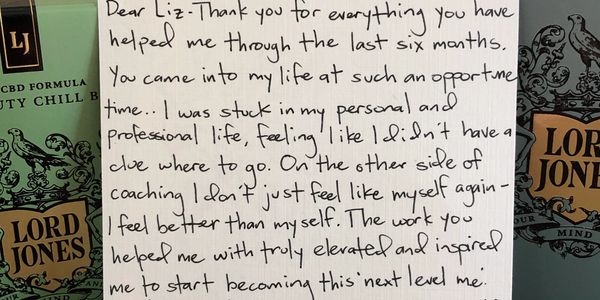 Dear Liz - Thank you for everything you have
helped me through the last six months.
You came into my life at such an opportune
time.. I was stuck in my personal and
professional life, feeling like I didn't have a
clue where to go. On the other side of
coaching I don't just feel like myself again -
I feel better than myself. The work you
helped me with truly elevated and inspired
me to start becoming this 'next level me'.
LJ
CBD FORMULA
UTY CHILL B
LORD
JONES
MIND
AN
LORD
JONE
OUR
MIND